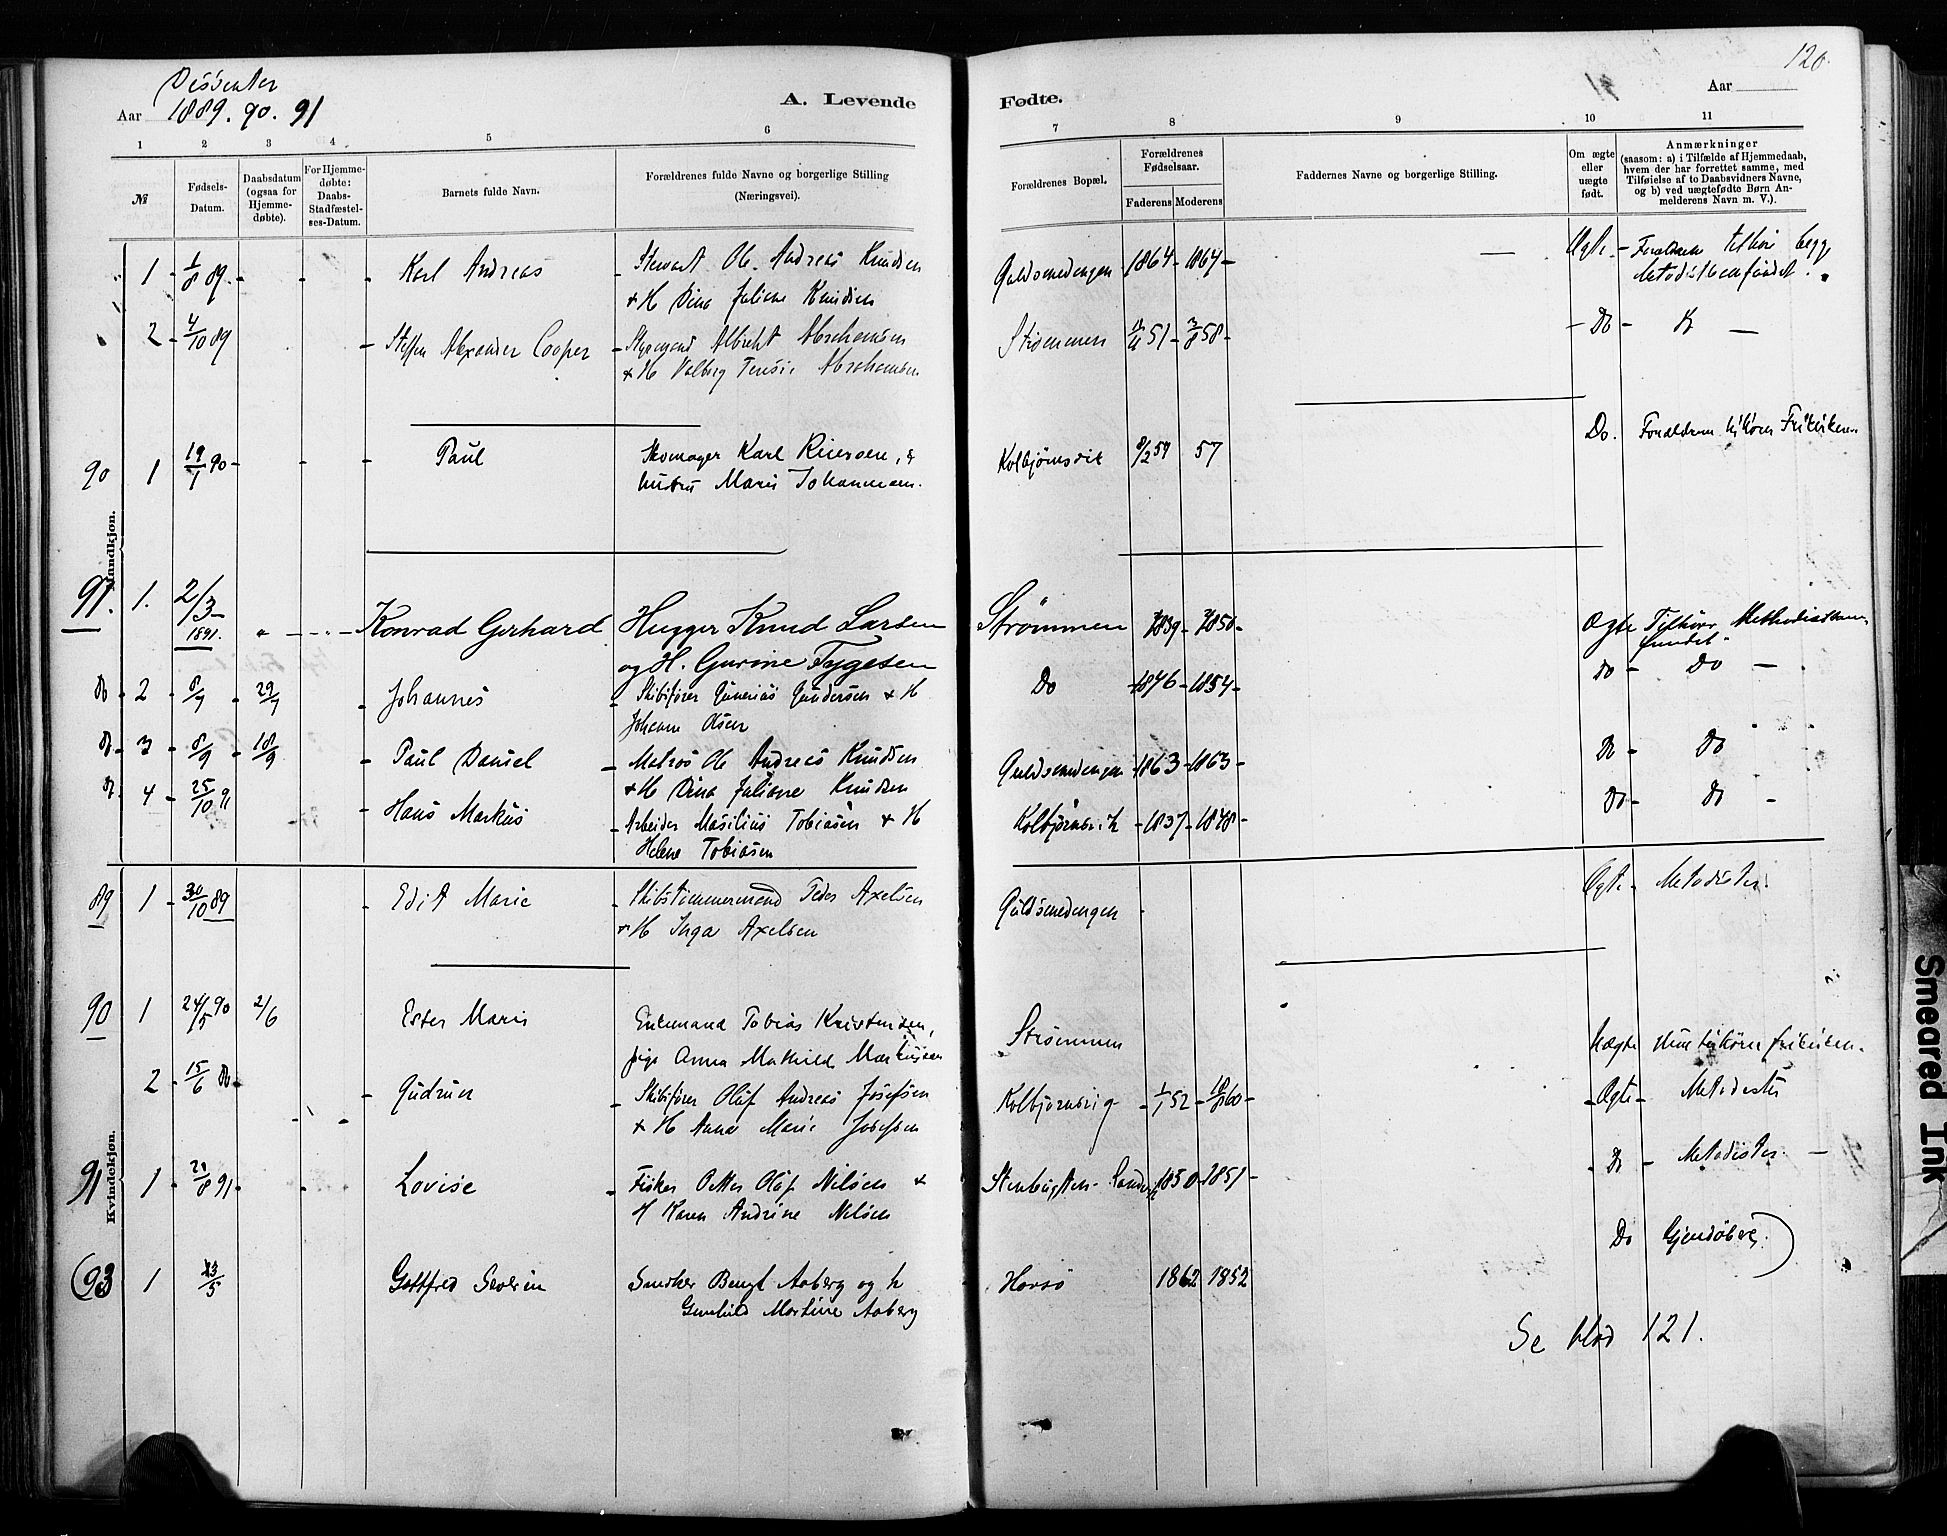 Dissenter
Aar 1889. 90. 91
A. Levende
Fødte.
Aar
120.
1 2 3 4 5 6 7 8 9 10 11
№
Fødsels-
Datum.
Daabsdatum
(ogsaa for
Hjemme-
døbte).
For Hjemme-
døbte:
Daabs-
Stadfæstel-
ses-Datum.
Barnets fulde Navn.
Forældrenes fulde Navne og borgerlige Stilling
(Næringsvei).
Forældrenes Bopæl.
Forældrenes
Fødselsaar.
Faderens Moderens
Faddernes Navne og borgerlige Stilling.
Om ægte
eller
uægte
født.
Anmærkninger
(saasom: a) i Tilfælde af Hjemmedaab,
hvem der har forrettet samme, med
Tilføielse af to Daabsvidners Navne,
og b) ved uægtefødte Børn An-
melderens Navn m. V.).
Mandkjøn.
1 1/8 89. Karl Andreas Stewart Ole Andreas Knudsen Guldsmedengen 1864 1864 Ægte Forældrene tilhøre begge
& H Dina Juliane Knudsen Metodistsamfundet.
2 4/10 89 Steffen Alexander Cooper Styrmand Albreht Abrahamsen Strømmen 51 58 Do Do
& H Valborg Abrahamsen
90 1 19/7 90 Paul Skomager Karl Reiersen, & Kolbjørnsvik 8/2 59 57 Do. Forældrene tilhører Frikirken
hustru Marie Johannesen.
91. 1. 2/3 1891. Konrad Gerhard Hugger Knud Larsen Strømmen 1839 1850 Ægte Tilhører Methodistsam-
og H. Gurine Tygesen fundet
Do 2 8/7 29/7 Johannes Skibsfører Gunerius Gundersen & H Do 1846 1854 Do Do
Johanne Olsen
Do 3 8/9 18/9 Paul Daniel Matros Ole Andreas Knudsen Guldsmedengen 1863 1863 Do Do
& H Dina Juliane Knudsen
Do 4 25/10 91 Hans Markus Arbeider Masilius Tobiasen & H Kolbjørnsvik 1837 1848 Do Do
Helene Tobiasen
Kvindekjøn.
89 1 30/10 89 Edit Marie Skibstømmermand Peder Axelsen Guldsmedengen Ægte Metodister
& H Inga Axelsen
90 1 24/5 90 2/6 Ester Marie Enkemand Tobias Kristensen, Strømmen Uægte tilhører frikirken.
pige Anna Mathilde Markussen
2 15/6 Do Gudrun Skibsfører Oluf Andreas Josefsen Kolbjørnsvig 1/1 52 18/8 60 Ægte Metodister
& H Anne Marie Josefsen
91 1 21/8 91 Lovise Fisker Oluf Nilsen & 1850 1851 Do Metodister
H Karen Andrine Nilsen
(93 1 13/5 Gottfred Severin Snedker Bengt Aaberg og h Havsø 1862 1852 Do Gjendøbere)
Gunhild Martine Aaberg
Se blad 121.
Smeared Ink